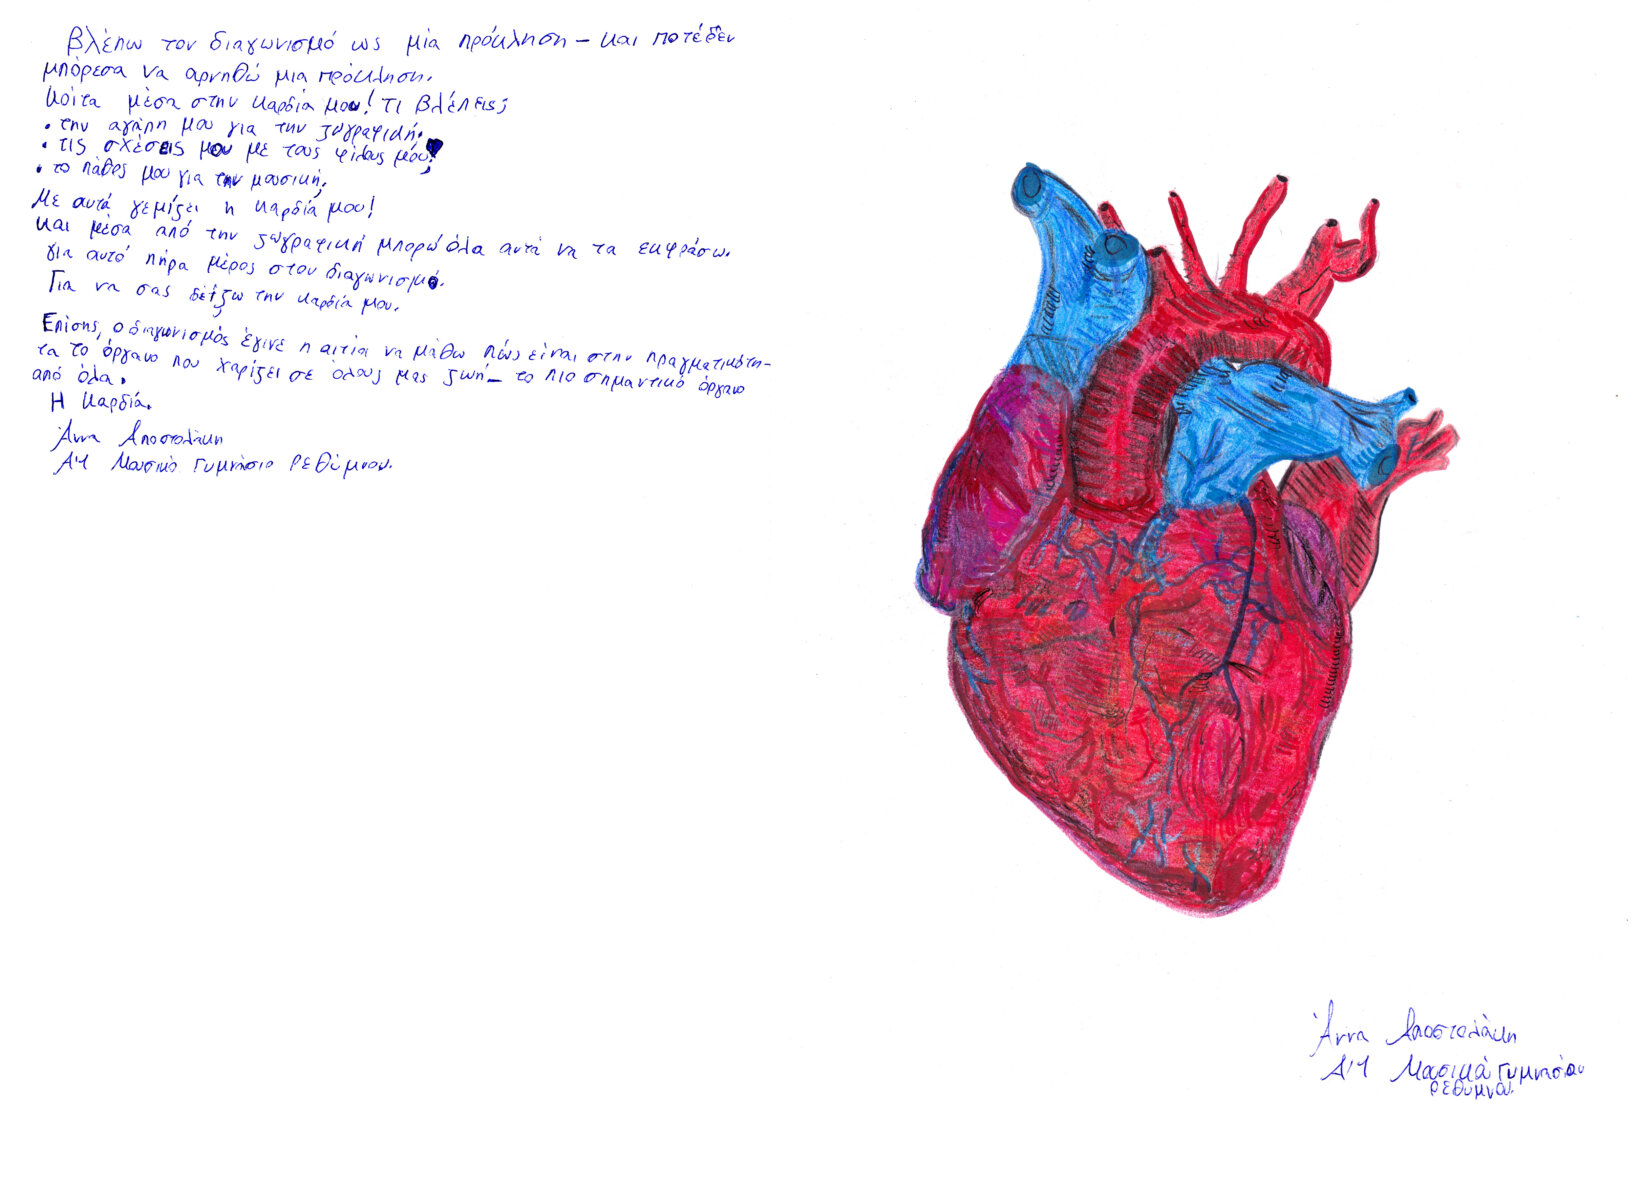 βλέπω τον διαγωνισμό ως μία πρόκληση – και ποτέ δεν
μπόρεσα να αρνηθώ μια πρόκληση.
Κοίτα μέσα στην καρδιά μου! Τι βλέπεις;
• την αγάπη μου για την ζωγραφική.
• τις σχέσεις μου με τους φίλους μου!
• το πάθος μου για την μουσική;
Με αυτά γεμίζει η καρδιά μου!
Και μέσα από την ζωγραφική μπορώ όλα αυτά να τα εκφράσω.
για αυτό πήρα μέρος στον διαγωνισμό.
Για να σας δείξω την καρδιά μου.
Επίσης, ο διαγωνισμός έγινε η αιτία να μάθω πώς είναι στην πραγματικότη-
τα το όργανο που χαρίζει σε όλους μας ζωή – το πιο σημαντικό όργανο
από όλα.
Η καρδιά.
Άννα Αποστολάκη
Α'1 Μουσικό Γυμνάσιο Ρεθύμνου.
Άννα Αποστολάκη
Α'1 Γυμνάσιου
Ρεθύμνου.